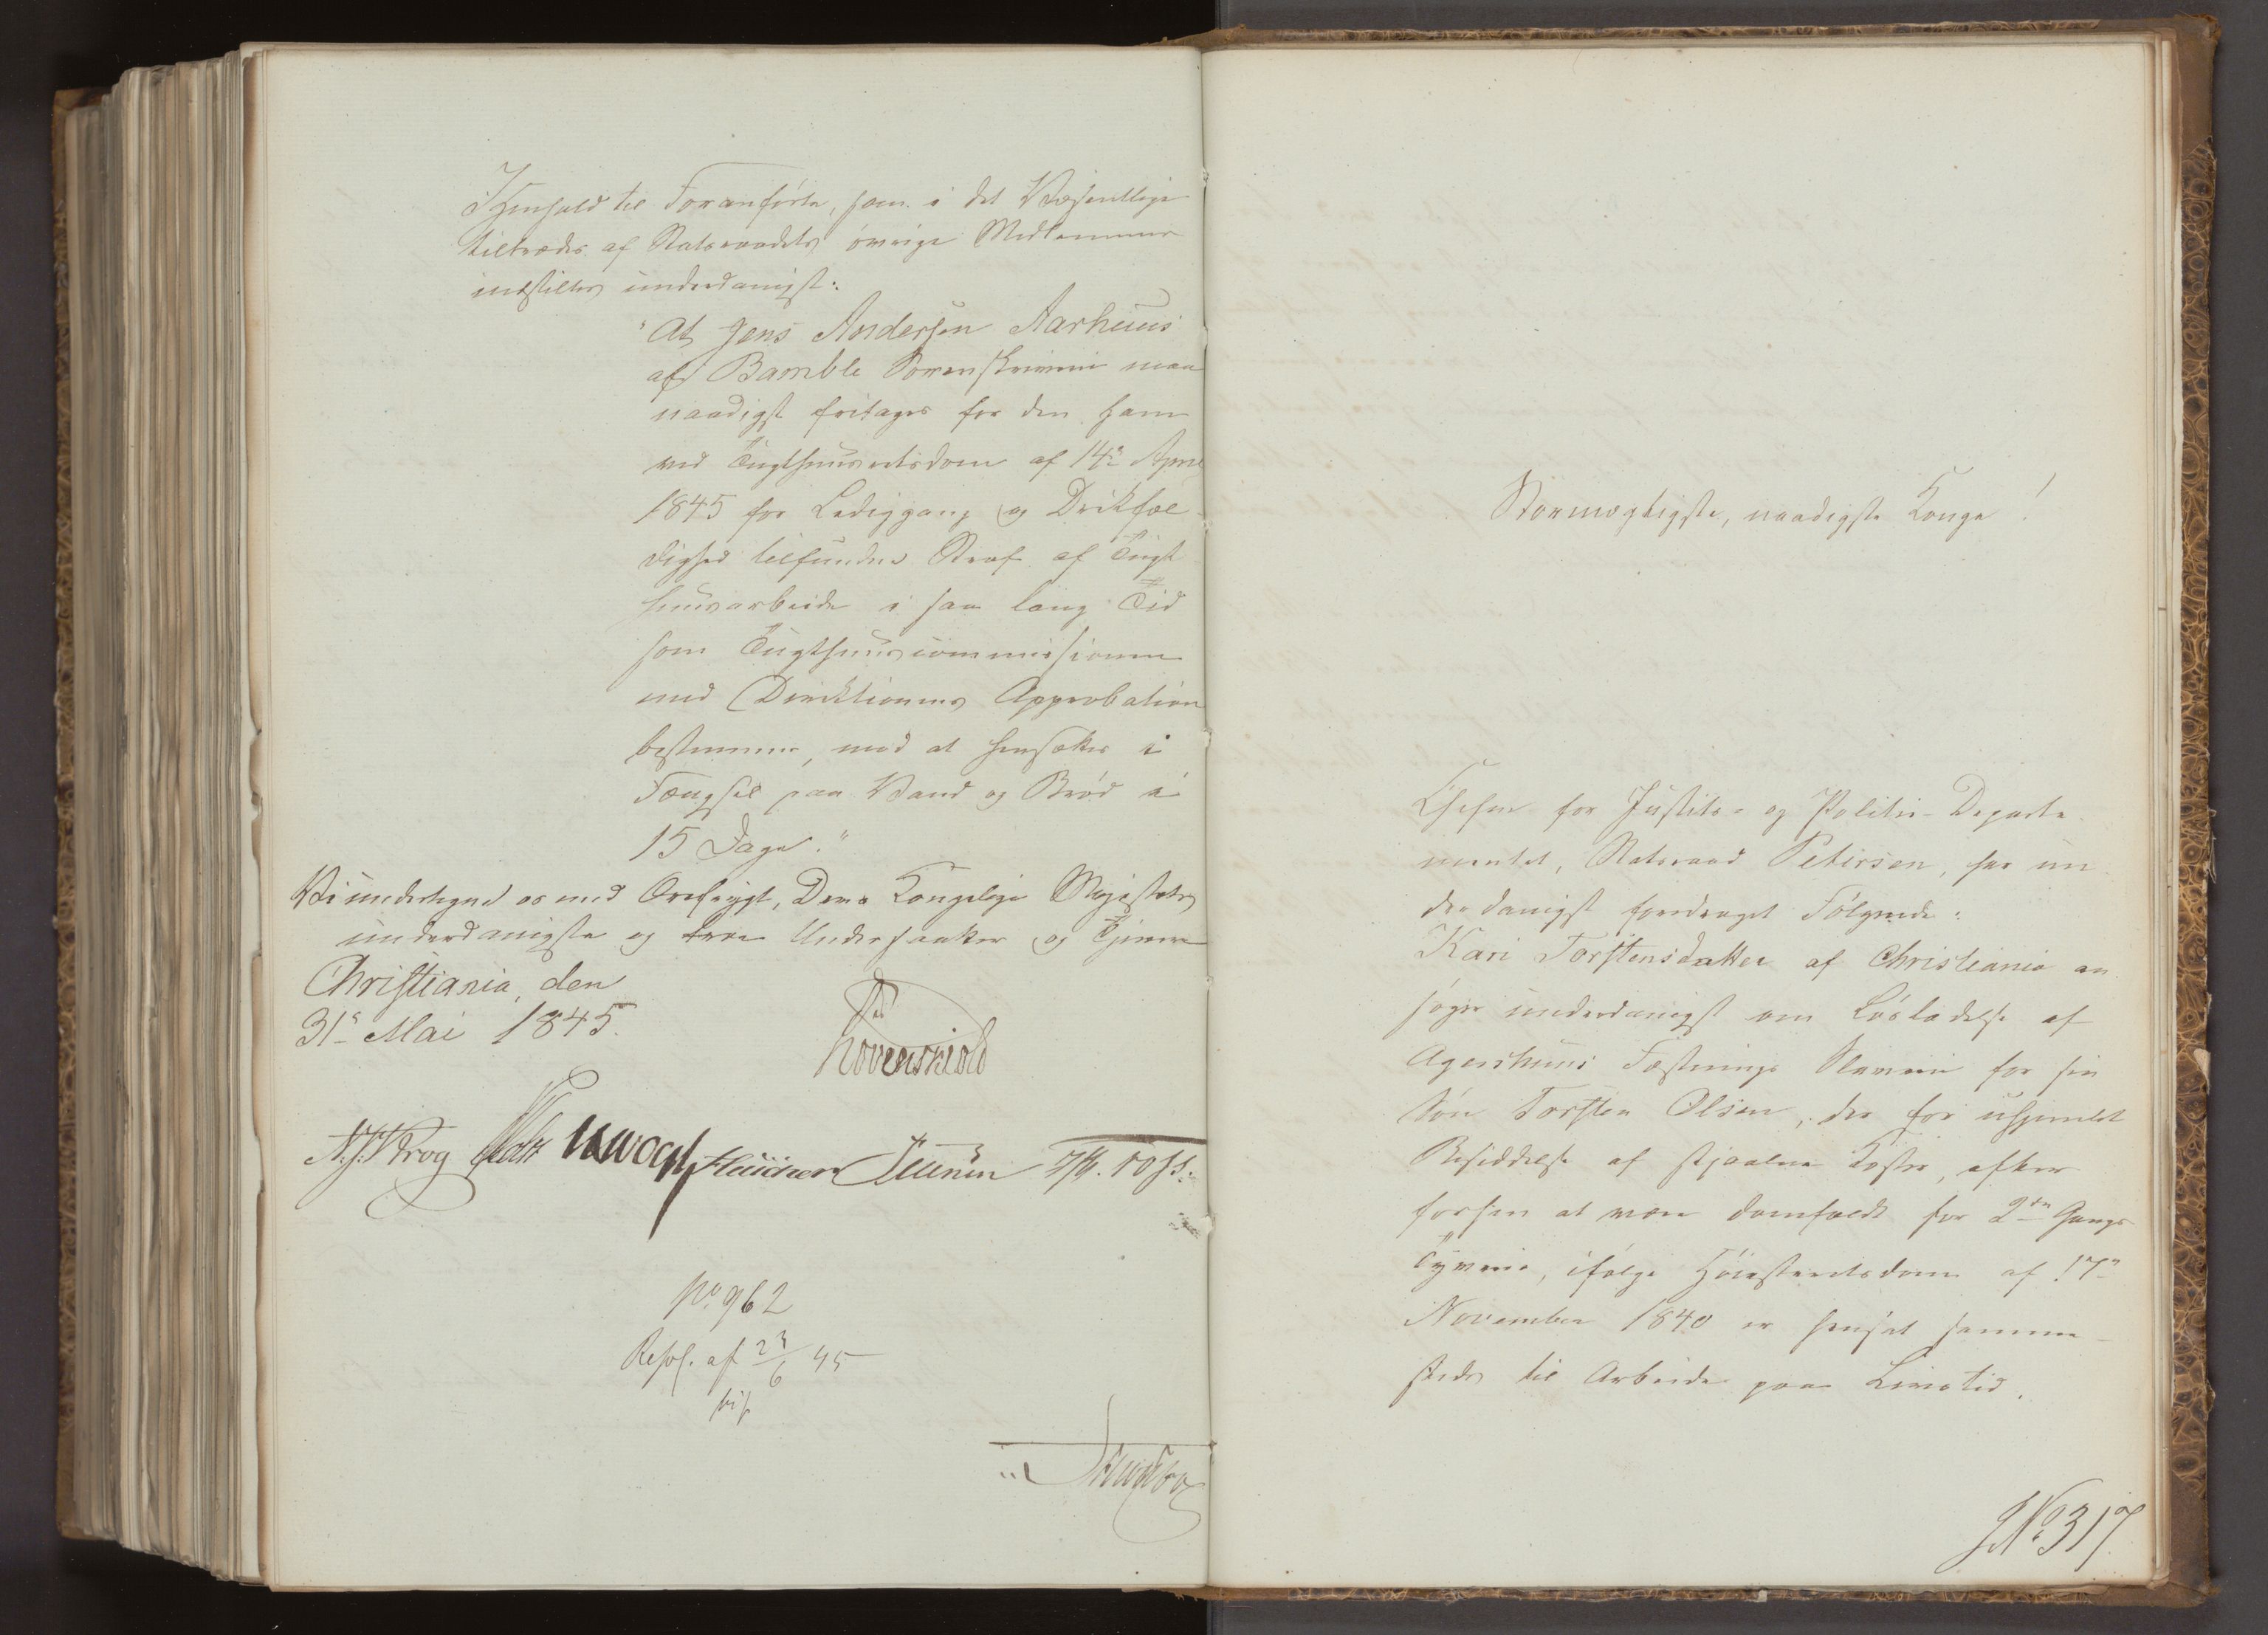 I Henhold til Foranførte, som i det Væsentlige
tiltrædes af Statsraadets øvrige Medlemmer
indstilles underdanigst:
"At Jens Andersen Aarhuus
af Bamble Sorenskriveri maa
naadigst fritages for den ham
ved Tugthuusretsdom af 14de April
1845 for Lediggang og Drikfæl-
dighed tilfundne Straf af Tugt
huusarbeide i saa lang Tid
som Tugthuuscommissionen
med Direktionens Approbation
bestemmer, mod at hensættes i
Fængsel paa Vand og Brød i
15 Dage."
Vi undertegne os med Ærefrygt, Deres Kongelige Majestæts
underdanigste og troe Undersaatter og Tjenere
Christiania, den
31te Mai 1845.
Løvenskiold
N. J. Krog Holst Vogt
No 962
Resol. af 23/6 45
Stormægtigste, naadigste Konge!
Chefen for Justits- og Politie-Departe
mentet, Statsraad Petersen, har un
derdanigst foredraget Følgende:
Kari Torstensdatter af Christiania an
søger underdanigst om Løsladelse af
Agershuus Fæstnings Slaveri for sin
Søn Torsten Olsen, der for uhjemlet
Besiddelse af stjaalne Koster, efter
forhen at være domfældt for 2den Gangs
Tyverie, ifølge Høiesteretsdom af 17de
November 1840 er hensat samme-
steds til Arbeide paa Livstid.
JNo 317